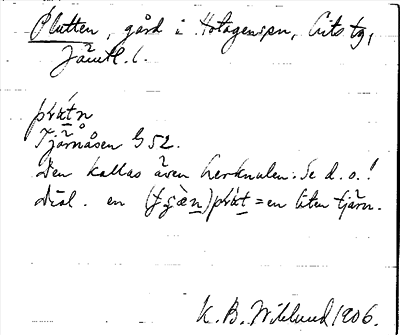 Plutten, gård i Hotagens sn, Lits tg,
Jämtl. l.
plútn
Tjärnåsen G 52.
Den kallas även Lerknulen. Se d. o.!
Dial. en (tjæ̀n)plút = en liten tjärn.
K. B. Wiklund 1906.